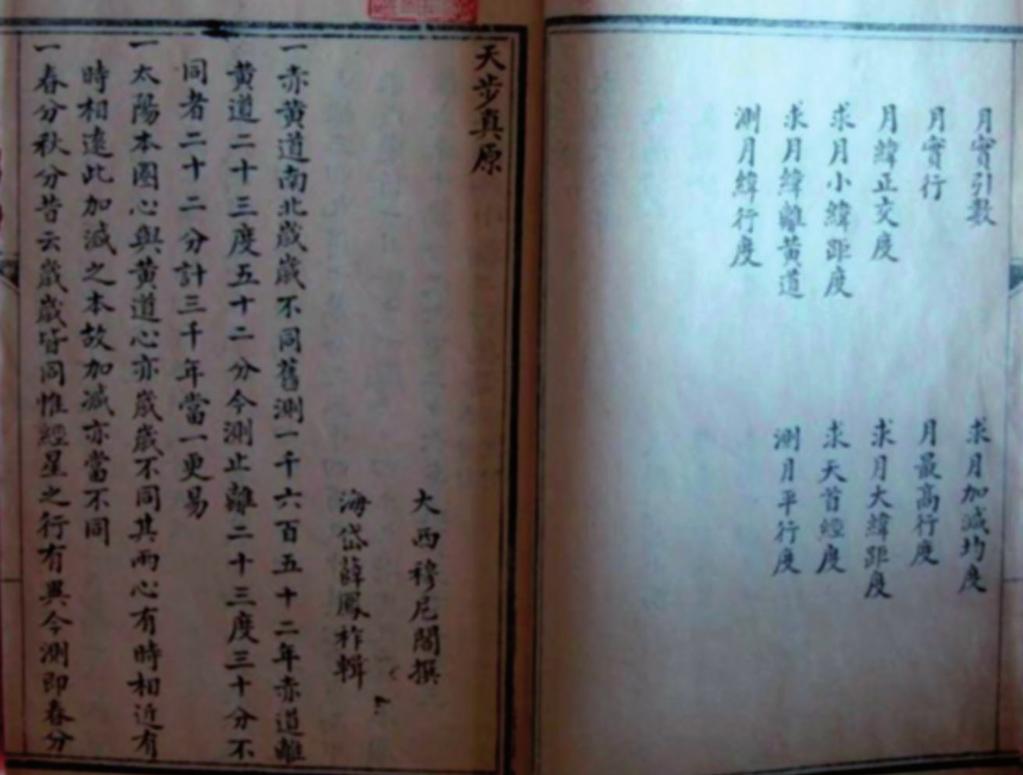 月實引數
求月加減均度
月實行
月最高行度
月緯正交度
求月大緯距度
求月小緯距度
求天首經度
求月緯離黃道
測月平行度
測月緯行度
天步真原
大西穆尼閣撰
海岱薛鳳祚輯
一赤黃道南北歲歲不同舊測一千六百五十二年赤道離
黃道二十三度五十二分今測止離二十三度三十分不
同者二十二分計三千年當一更易
一太陽本圈心與黃道心亦歲歲不同其兩心有時相近有
時相遠此加減之本故加減亦當不同
一春分秋分昔云歲歲皆同惟經星之行有異今測即春分